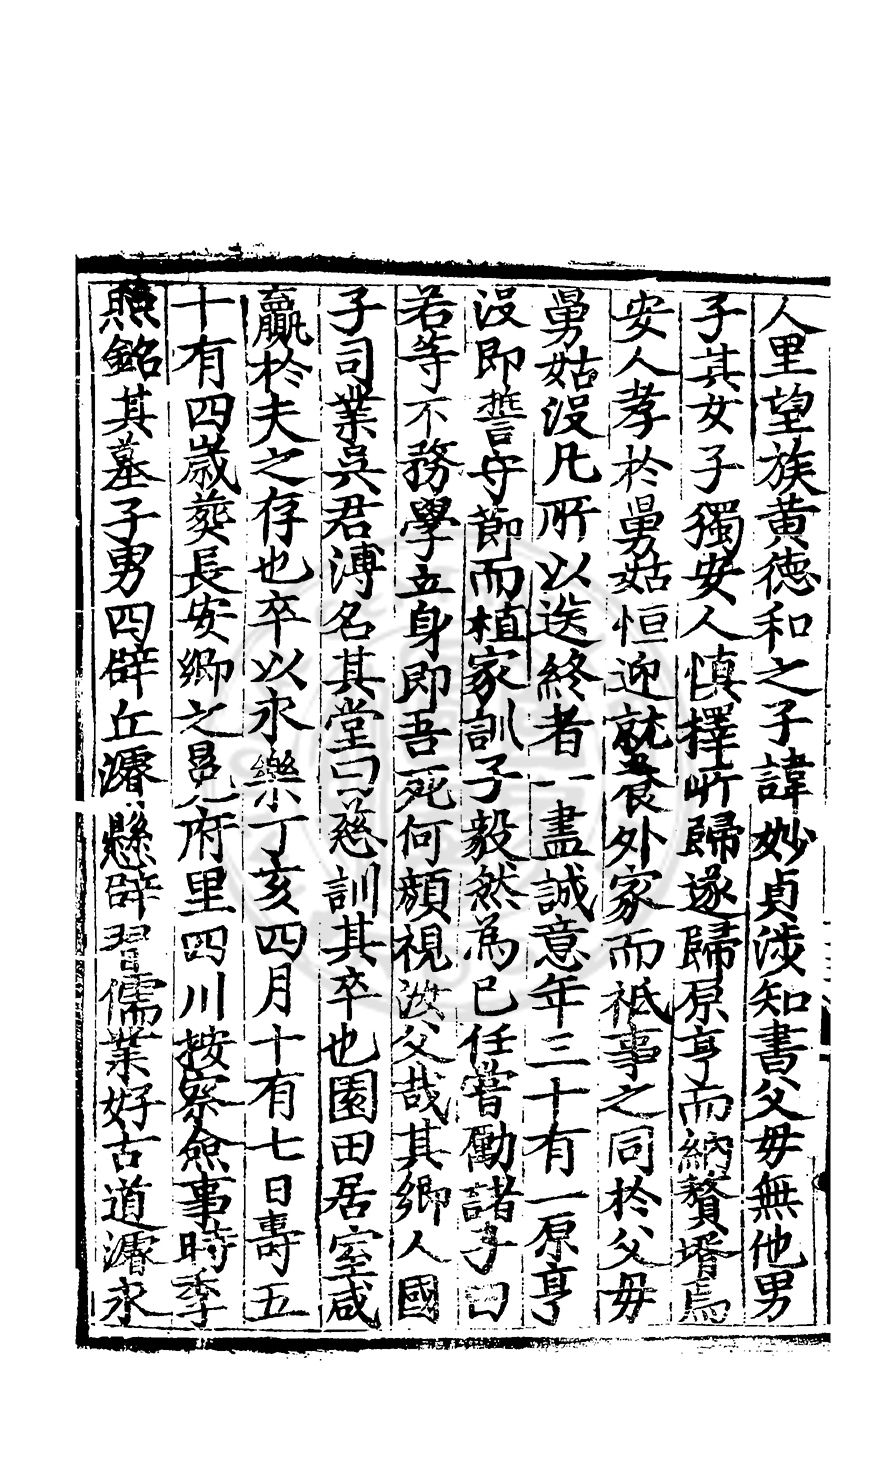 人里望族黄徳和之子諱妙貞渉知書父毋無他男
子其女子獨安人慎擇所歸遂歸原亨而納贅壻焉
安人孝於舅姑恒迎就養外家而祗事之同於父毋
舅姑没凡所以送終者一盡誠意年三十有一原亨
没即誓守節而植家訓子毅然為已任嘗勵諸子曰
若等不務學立身即吾死何顔視汝父哉其鄉人國
子司業吳君溥名其堂曰慈訓其卒也園田居室咸
贏於夫之存也卒以永樂丁亥四月十有七日壽五
十有四歲葬長安鄉之邑府里四川按察僉事時季
照銘其墓子男四辟丘濬懸辟習儒業好古道濬永